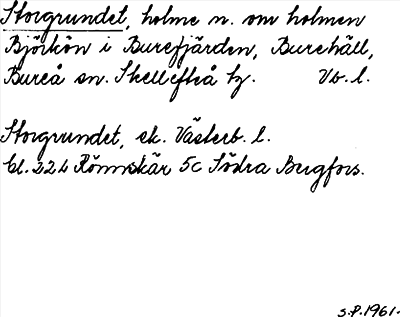 Storgrundet, holme n. om holmen
Björkön i Burefjärden, Burehäll,
Bureå sn. Skellefteå tg. Vb. l.
Storgrundet, ek. Västerb. l.
bl. 224 Rönnskär 5c Södra Bergfors.
S.P. 1961.